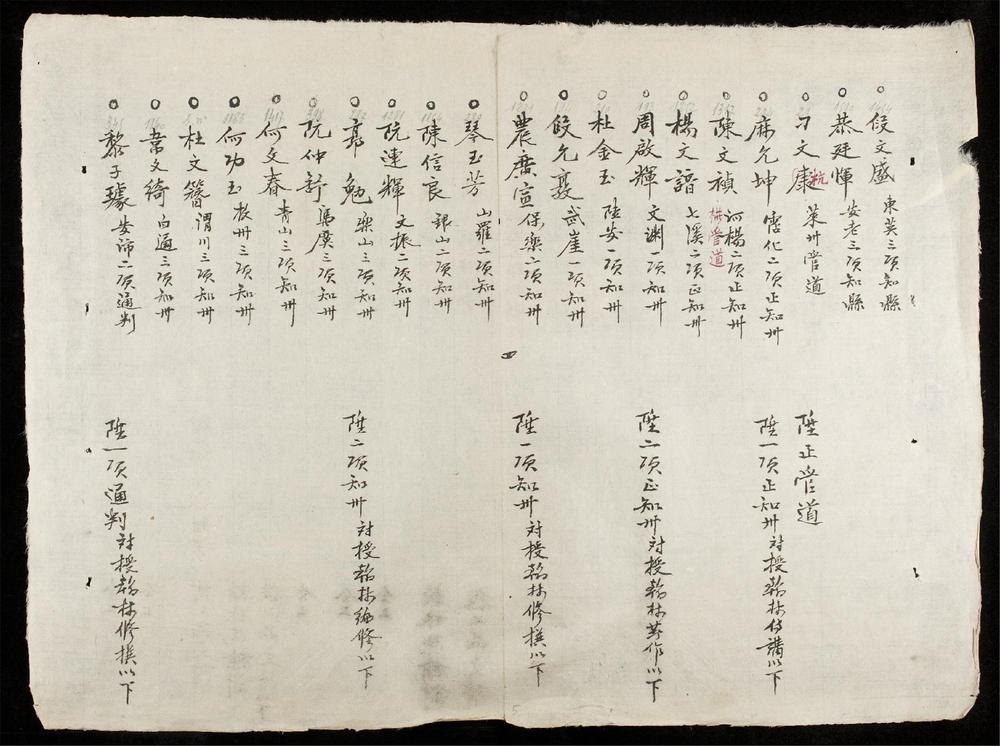 段文盛 東英三項知縣
恭廷惲 安老三項知縣
刁文康 萊卅管道
杭
陞正管道
麻允坤 霑化二項正知卅
陞一項正知卅対授翰林侍講以下
陳文禎 河楊二項正知卅
楊文諳 七溪二項正知卅
周啟輝 文渊一項知卅
陞二項正知卅対授翰林著作以下
杜金玉 陸安一項知卅
段允 武崖一項知卅
農廣宣 保樂二項知卅
陞一項知卅対授翰林修撰以下
琴玉芳 山羅二項知卅
陳信良 銀山二項知卅
阮連輝 文振二項知卅
郭勉 樂山三項知卅
陞二項知卅対授翰林編修以下
阮仲舒 廣三項知卅
何文春 青山三項知卅
何功玉 枚卅三項知卅
杜文簪 渭川三項知卅
韋文綺 白通三項知卅
黎子璩 安諦二項通判
陞一項通判対授翰林修撰以下
四